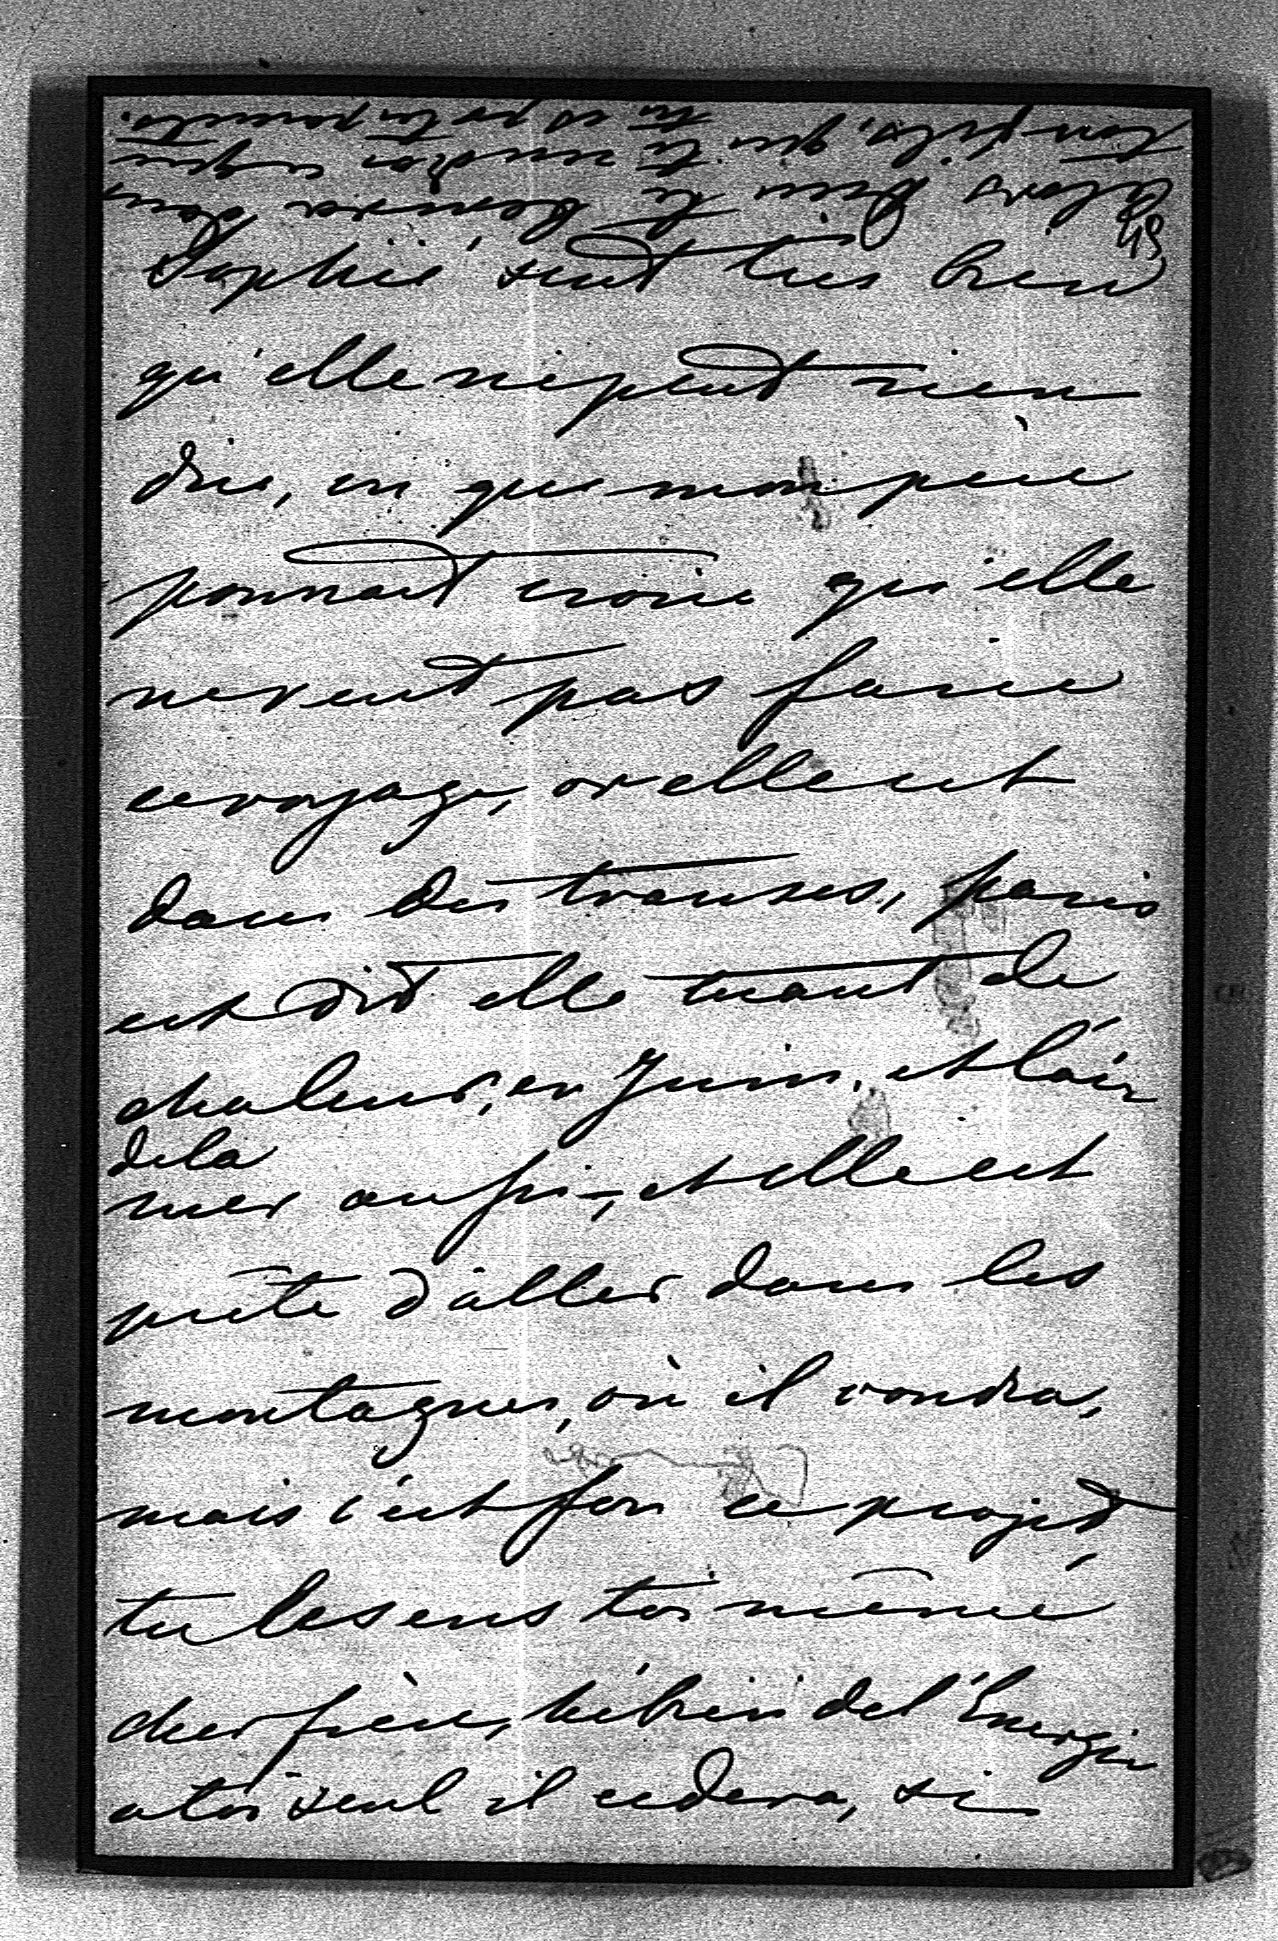 alors Dieu te bénira dans
ton fils, qui te rendra ce que
tu es pr tes parents.
49
Sophie sent très bien
qu'elle ne peut rien
dire, en que mon père
pourrait croire qu'elle
ne veut pas faire
ce voyage, or elle est
dans des transes, Paris
est dit elle tuant de
chaleur, en Juin, et l'air
de la
mer aussi –, et elle est
prête d'aller dans les
montagnes, où il voudra,
mais c'est fou ce projet
tu le sens toi même
cher frère, hé bien de l'Énergie
a toi seul il cédera, si